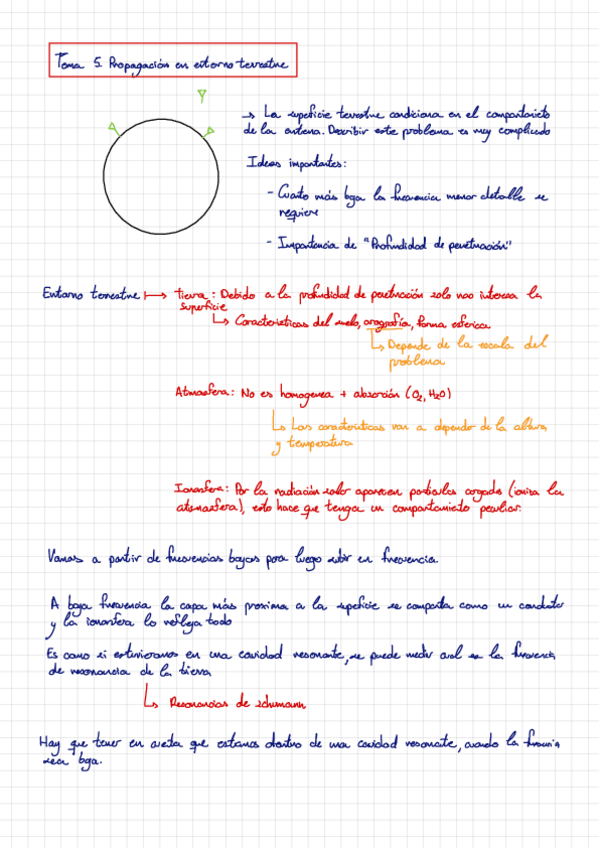 Tema 5. Propagación en entorno terrestre
→ La superficie terrestre condiciona en el comportamiento
de la antena. Describir este problema es muy complicado
Ideas importantes:
- Cuanto más baja la frecuencia menor detalle se
requiere
- Importancia de "Profundidad de penetración"
Entorno terrestre → tierra: Debido a la profundidad de penetración solo nos interesa la
superficie
↳ Características del suelo, orografía, forma esférica
↳ Depende de la escala del
problema
Atmosfera: No es homogenea + absorción (O₂, H₂O)
↳ Las características van a depender de la altura
y temperatura
Ionosfera: Por la radiación solar aparecen partículas cargadas (ioniza la
atmosfera), esto hace que tenga un comportamiento peculiar.
Vamos a partir de frecuencias bajas para luego subir en frecuencia.
A baja frecuencia la capa más proxima a la superficie se comporta como un conductor
y la ionosfera lo refleja todo
Es como si estuvieramos en una cavidad resonante, se puede medir cual es la frecuencia
de resonancia de la tierra
↳ Resonancias de schumann
Hay que tener en cuenta que estamos dentro de una cavidad resonante, cuando la frecuencia
sea baja.